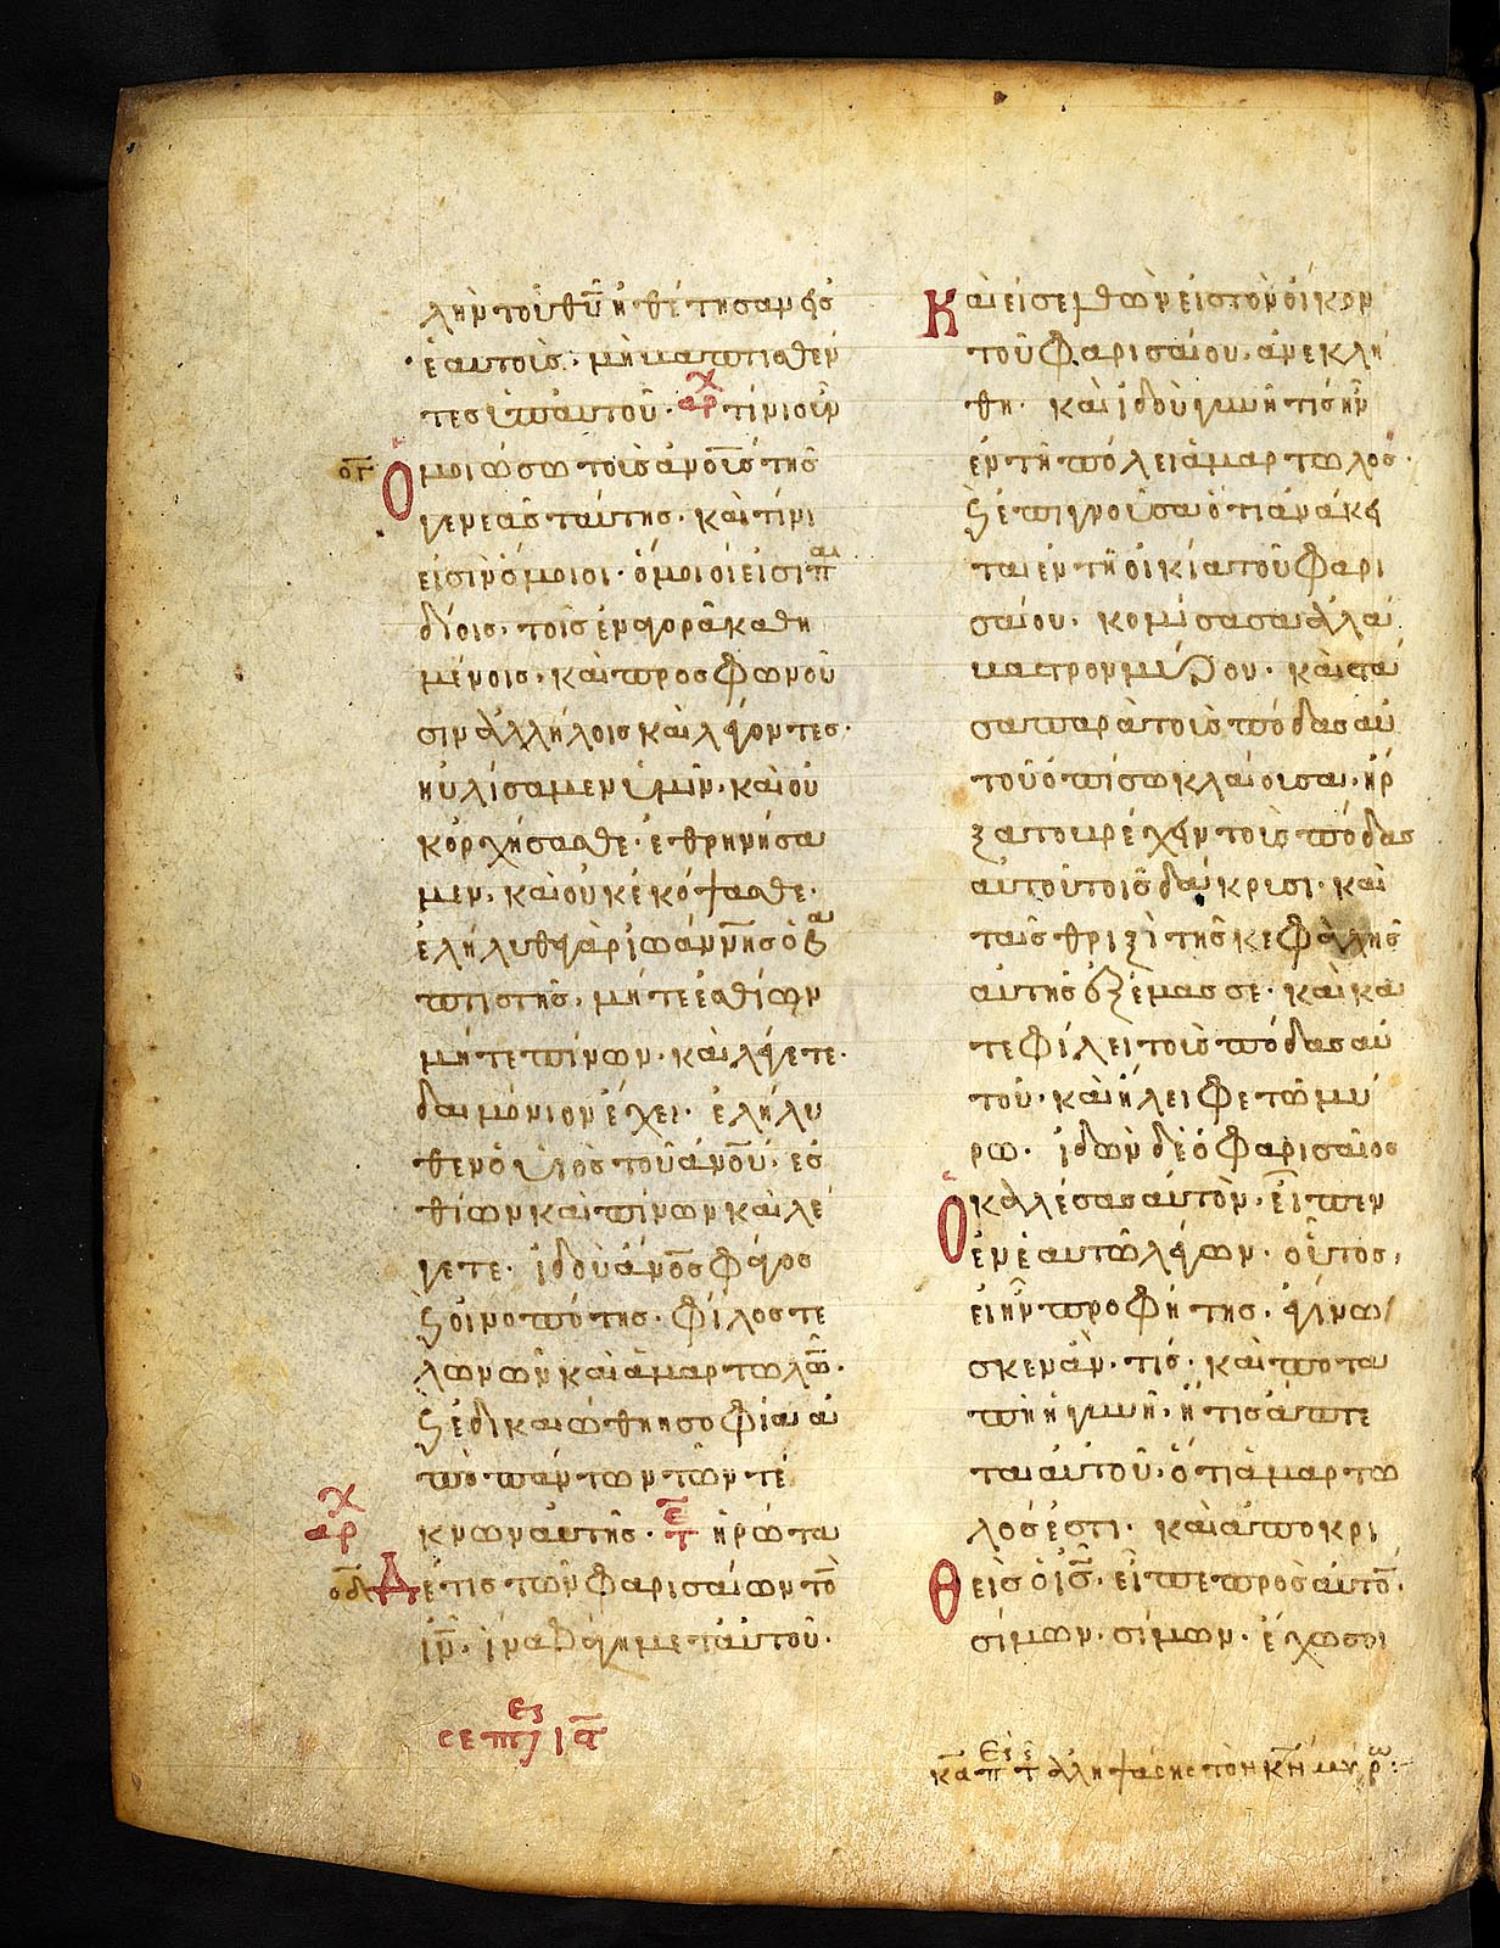 λὴν τοῦ θῦ ἠθέτησαν εἰσ
ἑαυτοὺσ· μὴ βαπτισθέν
τεσ ὑπ' αὐτοῦ· αρχ τίνι οὖν
ογ Ὁμοιώσω τοὺσ ἀνοῦσ τῆσ
γενεᾶσ ταύτησ· καὶ τίνι
εἰσὶν ὅμοιοι· ὅμοιοί εἰσι παι
δίοισ, τοῖσ ἐν ἀγορᾶ καθη
μένοισ, καὶ προσφωνοῦ
σιν ἀλλήλοισ καὶ λέγοντεσ·
ηὐλίσαμεν ὑμῖν, καὶ οὐ
κ ὀρχήσασθε· ἐθρηνήσα
μεν, καὶ οὐκ ἐκόψασθε·
ἐλήλυθε γὰρ ἰωάννησ ὁ βα
πτιστὴσ, μήτε ἐσθίων
μήτε πίνων· καὶ λέγετε·
δαιμόνιον ἔχει· ἐλήλυ
θεν ὁ υἱὸσ τοῦ ἀνοῦ, ἐσ
θίων καὶ πίνων καὶ λέ
γετε· ἰδοὺ ἄνοσ φάγοσ
ϗ οἰνοπότησ· φίλοσ τε
λωνῶν καὶ ἁμαρτωλῶ·
ϗ ἐδικαιώθη ἡ σοφία ἀ
πὸ πάντων τῶν τέ
αρχ κνων αὐτῆσ· τε ἠρώτα
οδ Δέ τισ τῶν φαρισαίων τὸ
ἰν, ἵνα φάγη μετ' αὐτοῦ·
Καὶ εἰσελθὼν εἰσ τὸν οἶκον
τοῦ φαρισαίου, ἀνεκλή
θη· καὶ ἰδοὺ γυνή τισ ἦν
ἐν τῆ πόλει ἁμαρτωλόσ·
ϗ ἐπιγνοῦσα ὅτι ἀνάκει
ται ἐν τῆ οἰκία τοῦ φαρι
σαίου· κομίσασα ἀλά
βαστρον μύρου· καὶ στᾶ
σα παρὰ τοὺσ πόδασ αὐ
τοῦ ὀπίσω κλαίουσα, ἤρ
ξατο βρέχειν τοὺσ πόδασ
αὐτοῦ τοῖσ δάκρυσι· καὶ
ταῖσ θριξὶ τῆσ κεφαλῆσ
αὐτῆσ ἐξέμασσε· καὶ κα
τεφίλει τοὺσ πόδασ αὐ
τοῦ· καὶ ἤλειφε τῶ μύ
ρω· ἰδὼν δὲ ὁ φαρισαῖοσ
Ὁ καλέσασ αὐτὸν, εἶπεν
ἐν ἑαυτῶ λέγων· οὗτοσ,
εἰ ἦν προφήτησ, ἐγίνω
σκεν ἂν, τίσ· καὶ ποτα
πὴ ἡ γυνὴ, ἥτισ ἅπτε
ται αὐτοῦ, ὅτι ἁμαρτω
λόσ ἐστι· καὶ ἀποκρι
Θεὶσ ὁ ισ, εἶπε πρὸσ αὐτὸ·
σίμων· σίμων· ἔχω σοι